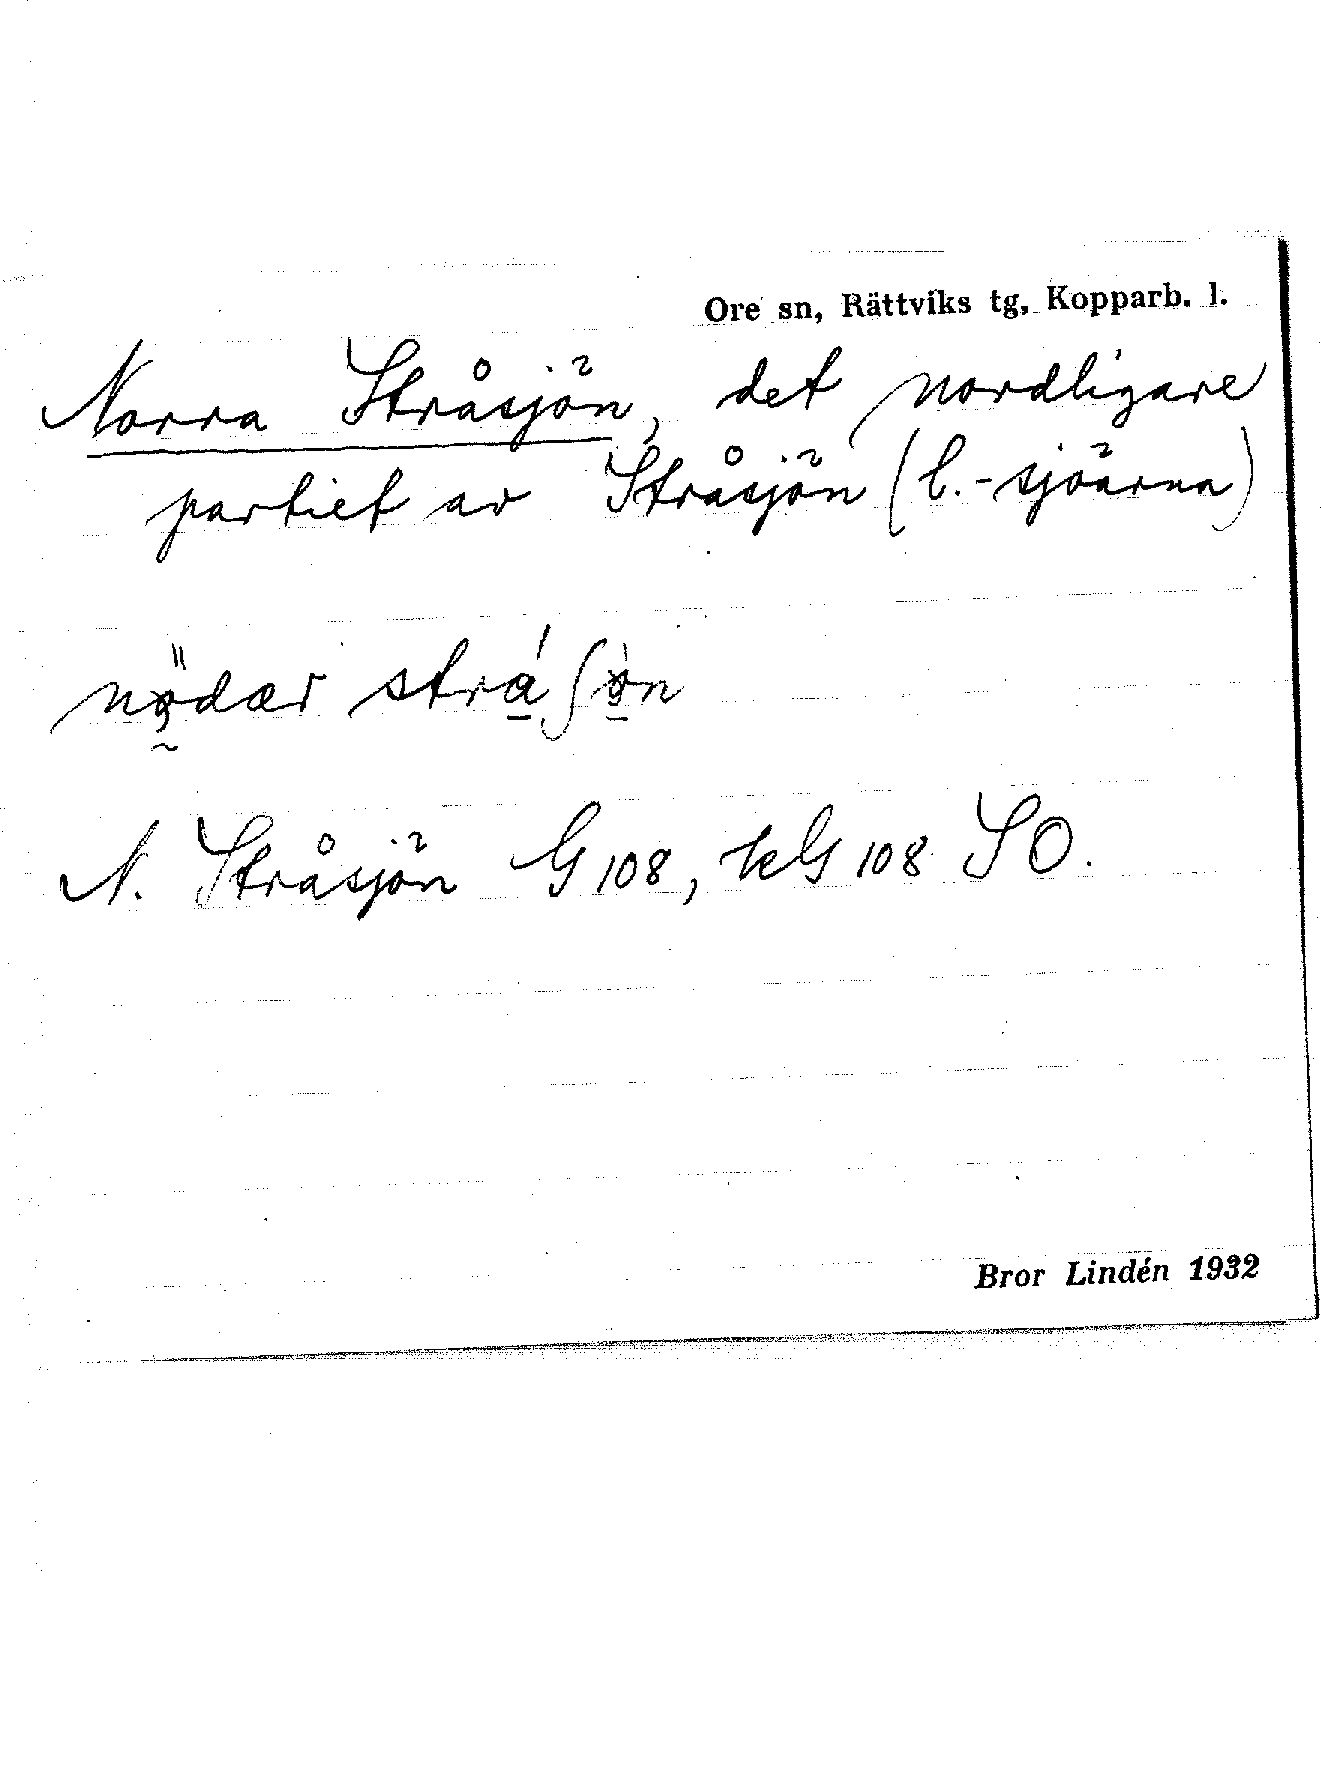 Ore sn, Rättviks tg, Kopparb. l.
Norra Stråsjön, det nordligare
partiet av Stråsjön (l.-sjöarna)
nödær strá∫òn
N. Stråsjön G 108, keG 108 SO.
Bror Lindén 1932